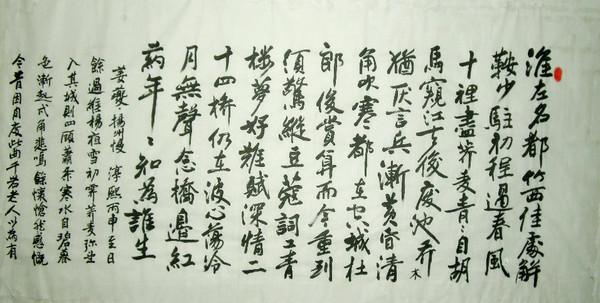 淮左名都竹西佳處解
鞍少駐初程過春風
十裡盡薺麥青〻自胡
馬窺江去後廢池喬木
猶厭言兵漸黃昏清
角吹寒都在空城杜
郎俊賞算而今重到
須驚縱豆蔻詞工青
樓夢好難賦深情二
十四橋仍在波心蕩冷
月無聲念橋邊紅
葯年〻知為誰生
姜夔揚州慢 淳熙丙申至日
餘過維揚夜雪初霽薺麥弥
入其城則四顧蕭条寒水自碧暮
色漸起戍角悲鳴餘懷愴然感慨
今昔因自度此曲千岩老人以為有